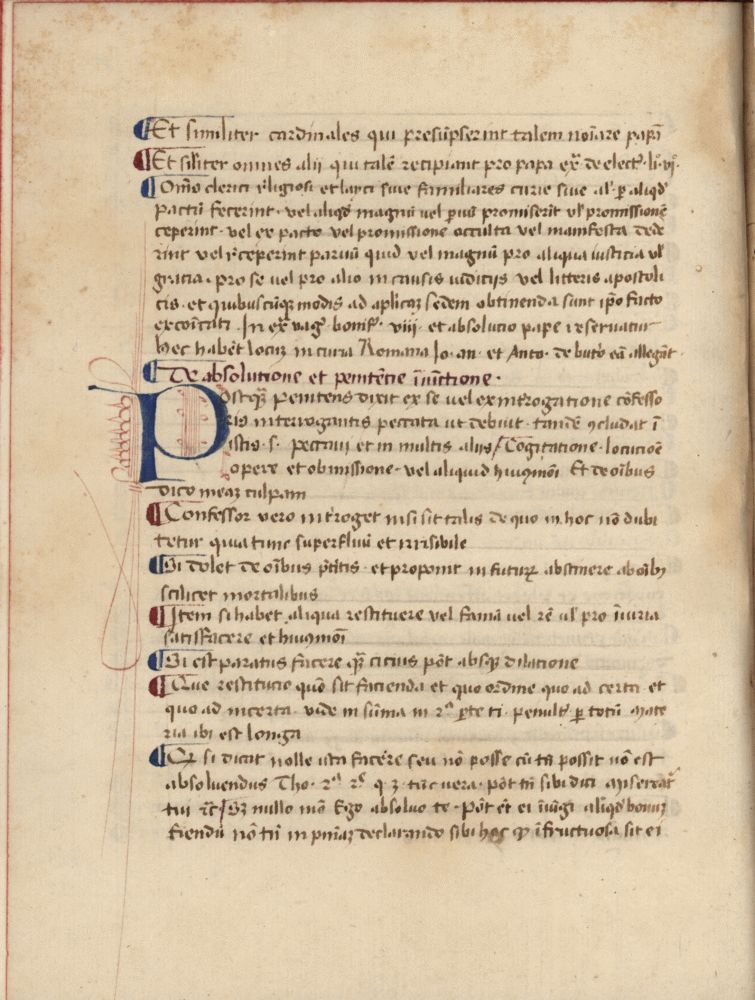 Et similiter cardinales qui presũpserint talem noĩare papã
Et silĩter omnes alii qui talẽ recipiant pro papa ex̃ de elect̃. li. vj.
Om̃s clerici r̃ligiosi et layci siue familiares curie siue al' p aliq̃d
pactũ fecerint . vel aliq̃d magnũ uel p̃uũ promiserĩt ul' promissionẽ
ceperint . vel ex pacto vel promissione occulta vel manifesta dede
rint vel r̃ceperint paruũ quid vel magnũ pro aliqua iusticia ul'
gracia . pro se uel pro alio in causis iudicijs vel litteris apostoli
cis . et quibuscũq modis ad aplicaȝ sedem obtinenda sunt ip̃o facto
excoĩcati . In ex̃uag̃ bonif̃ . viii . et absolucio pape reseruatur
hec habẽt locũ in curia Romana Jo. an. et Anto. de butº eã allegãt.
De absolutione et penitẽcie iniũctione .
Postq̃ȝ penitens dixit ex se uel ex introgatione cõfesso
ris interrogantis peccata ut debuit . tandẽ ɔcludat ĩ
istis . s . peccaui et in multis aliis Cogitatione . locutiõe
opere et obmissione . vel aliquid huiusmõi Et de oĩbus
dico meaȝ culpam
Confessor vero introget nisi sit talis de quo in hoc nõ dubi
tetur quia tunc superfluũ et irrisibile
Si dolet de oĩbus p̃titis . et proponit in futurȝ abstinere ab oĩbȝ
scilicet mortalibus
Item si habet aliqua restituere vel famã uel rẽ ul' pro iniuria
satisfacere et huiusmõi
Si est paratus facere q̃ȝ cicius põt absq̃ dilatione
Que restitucio quõ sit facienda et quo ordine quo ad certa et
quo ad incerta . vide in sũma in 2ª p̃te ti . penult̃ . p totũ mate
ria ibi est longa
Qȝ si dicat nolle ista facere seu nõ posse cũ tñ possit nõ est
absoluendus Tho . 2ª 2ᵉ q 3 . tũc vera . põt tñ sibi dici misereat̃
tui ⁊c̃ Sȝ nullo mõ Ego absoluo te . Põt et̃ ei iniũgi aliq̃d bonuȝ
fiendũ nõ tñ in pñiaȝ declarando sibi hoc qȝ ĩfructuosa sit ei